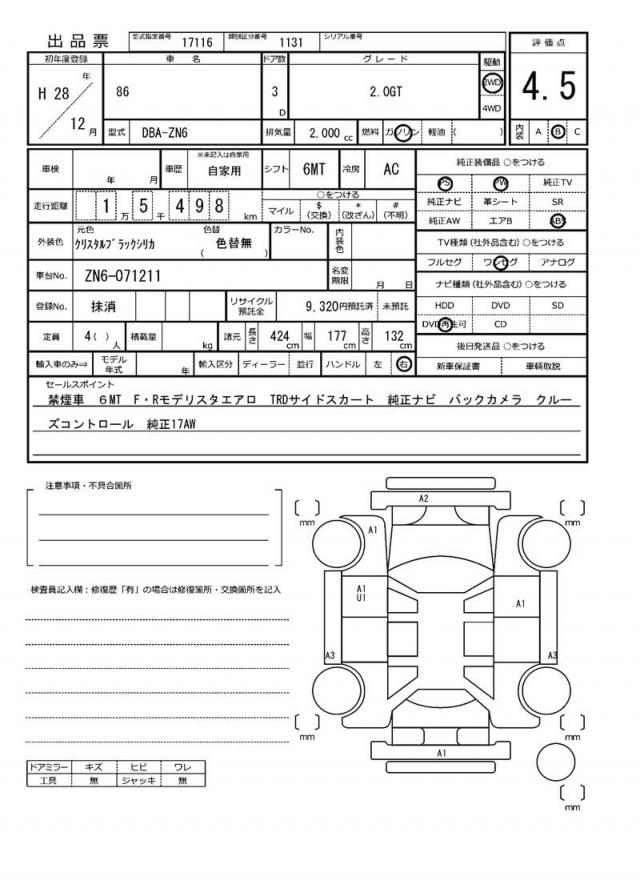 出品票 型式指定番号 17116 類別区分番号 1131 シリアル番号
初年度登録 車名 ドア数 グレード 駆動 評価点
H 28 年 86 3 D 2.0GT 2WD 4.5
4WD
12 月 型式 DBA-ZN6 排気量 2,000 cc 燃料 ガソリン 軽油 ( ) 内装 A B C
車検 年 月 車歴 ※未記入は自家用 自家用 シフト 6MT 冷房 AC 純正装備品 ○をつける
PS PW 純正TV
走行距離 1 万 5 千 4 9 8 km ○をつける 純正ナビ 革シート SR
マイル $ (交換) * (改ざん) # (不明) 純正AW エアB ABS
外装色 元色 クリスタルブラックシリカ 色替 ( 色替無 ) カラーNo. 内装色 TV種類(社外品含む)○をつける
フルセグ ワンセグ アナログ
車台No. ZN6-071211 名変期限 月 日 ナビ種類(社外品含む)○をつける
登録No. 抹消 リサイクル預託金 9,320円預託済 未預託 HDD DVD SD
DVD再生可 CD
定員 4( ) 人 積載量 kg 諸元 長さ 424 cm 幅 177 cm 高さ 132 cm 後日発送品 ○をつける
輸入車のみ⇒ モデル年式 年 輸入区分 ディーラー 並行 ハンドル 左 右 新車保証書 車輌取説
セールスポイント
禁煙車 6MT F・Rモデリスタエアロ TRDサイドスカート 純正ナビ バックカメラ クルー
ズコントロール 純正17AW
注意事項・不具合箇所
検査員記入欄：修復歴「有」の場合は修復箇所・交換箇所を記入
ドアミラー キズ ヒビ ワレ
工具 無 ジャッキ 無
A2
[ ] mm [ ] mm
A1
A1
U1
A1
A3 A3
[ ] mm [ ] mm
A1
[ ] mm